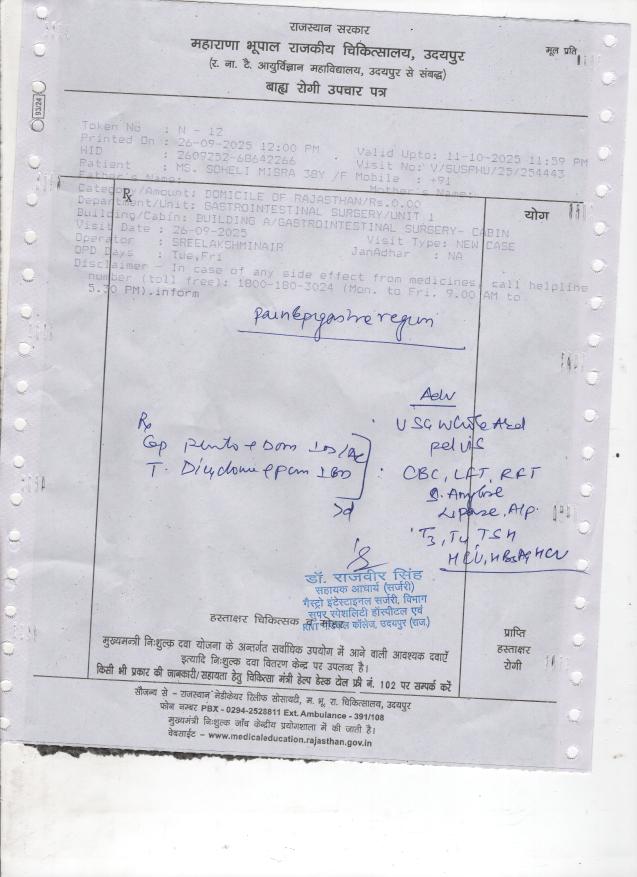 राजस्थान सरकार
महाराणा भूपाल राजकीय चिकित्सालय, उदयपुर
मूल प्रति
(र. ना. टै. आयुर्विज्ञान महाविद्यालय, उदयपुर से संबद्ध)
बाह्य रोगी उपचार पत्र
93/24
Token No : N - 12
Printed On : 26-09-2025 12:00 PM Valid Upto: 11-10-2025 11:59 PM
HID : 2609252-68642266 Visit No: V/SUSPHU/25/254443
Patient : MS. SOHELI MISRA 38Y /F Mobile : +91
Father's Name: Mother's Name:
Category/Amount: DOMICILE OF RAJASTHAN/Rs.0.00
Department/Unit: GASTROINTESTINAL SURGERY/UNIT 1
Building/Cabin: BUILDING A/GASTROINTESTINAL SURGERY- CABIN
Visit Date : 26-09-2025 Visit Type: NEW CASE
Operator : SREELAKSHMINAIR JanAadhar : NA
OPD Days : Tue,Fri
Disclaimer - In case of any side effect from medicines, call helpline
number (toll free): 1800-180-3024 (Mon. to Fri. 9.00 AM to
5.30 PM).inform
Rx
योग
Adv
Rx
USG Whole Abd
pelvis
CBC, LFT, RFT
S. Amylase
Lipase, Alp.
T3, T4 TSH
डॉ. राजवीर सिंह
सहायक आचार्य (सर्जरी)
गैस्ट्रो इंटेस्टाइनल सर्जरी, विभाग
सुपर स्पेशलिटी हॉस्पीटल एवं
RNT मेडिकल कॉलेज, उदयपुर (राज.)
हस्ताक्षर चिकित्सक व मोहर
मुख्यमन्त्री निःशुल्क दवा योजना के अन्तर्गत सर्वाधिक उपयोग में आने वाली आवश्यक दवाएँ
इत्यादि निःशुल्क दवा वितरण केन्द्र पर उपलब्ध है।
किसी भी प्रकार की जानकारी/सहायता हेतु चिकित्सा मंत्री हेल्प डेस्क टोल फ्री नं. 102 पर सम्पर्क करें
प्राप्ति
हस्ताक्षर
रोगी
सौजन्य से - राजस्थान मेडीकेयर रिलीफ सोसायटी, म. भू. रा. चिकित्सालय, उदयपुर
फोन नम्बर PBX - 0294-2528811 Ext. Ambulance - 391/108
मुख्यमंत्री निःशुल्क जाँच केन्द्रीय प्रयोगशाला में की जाती है।
वेबसाईट - www.medicaleducation.rajasthan.gov.in